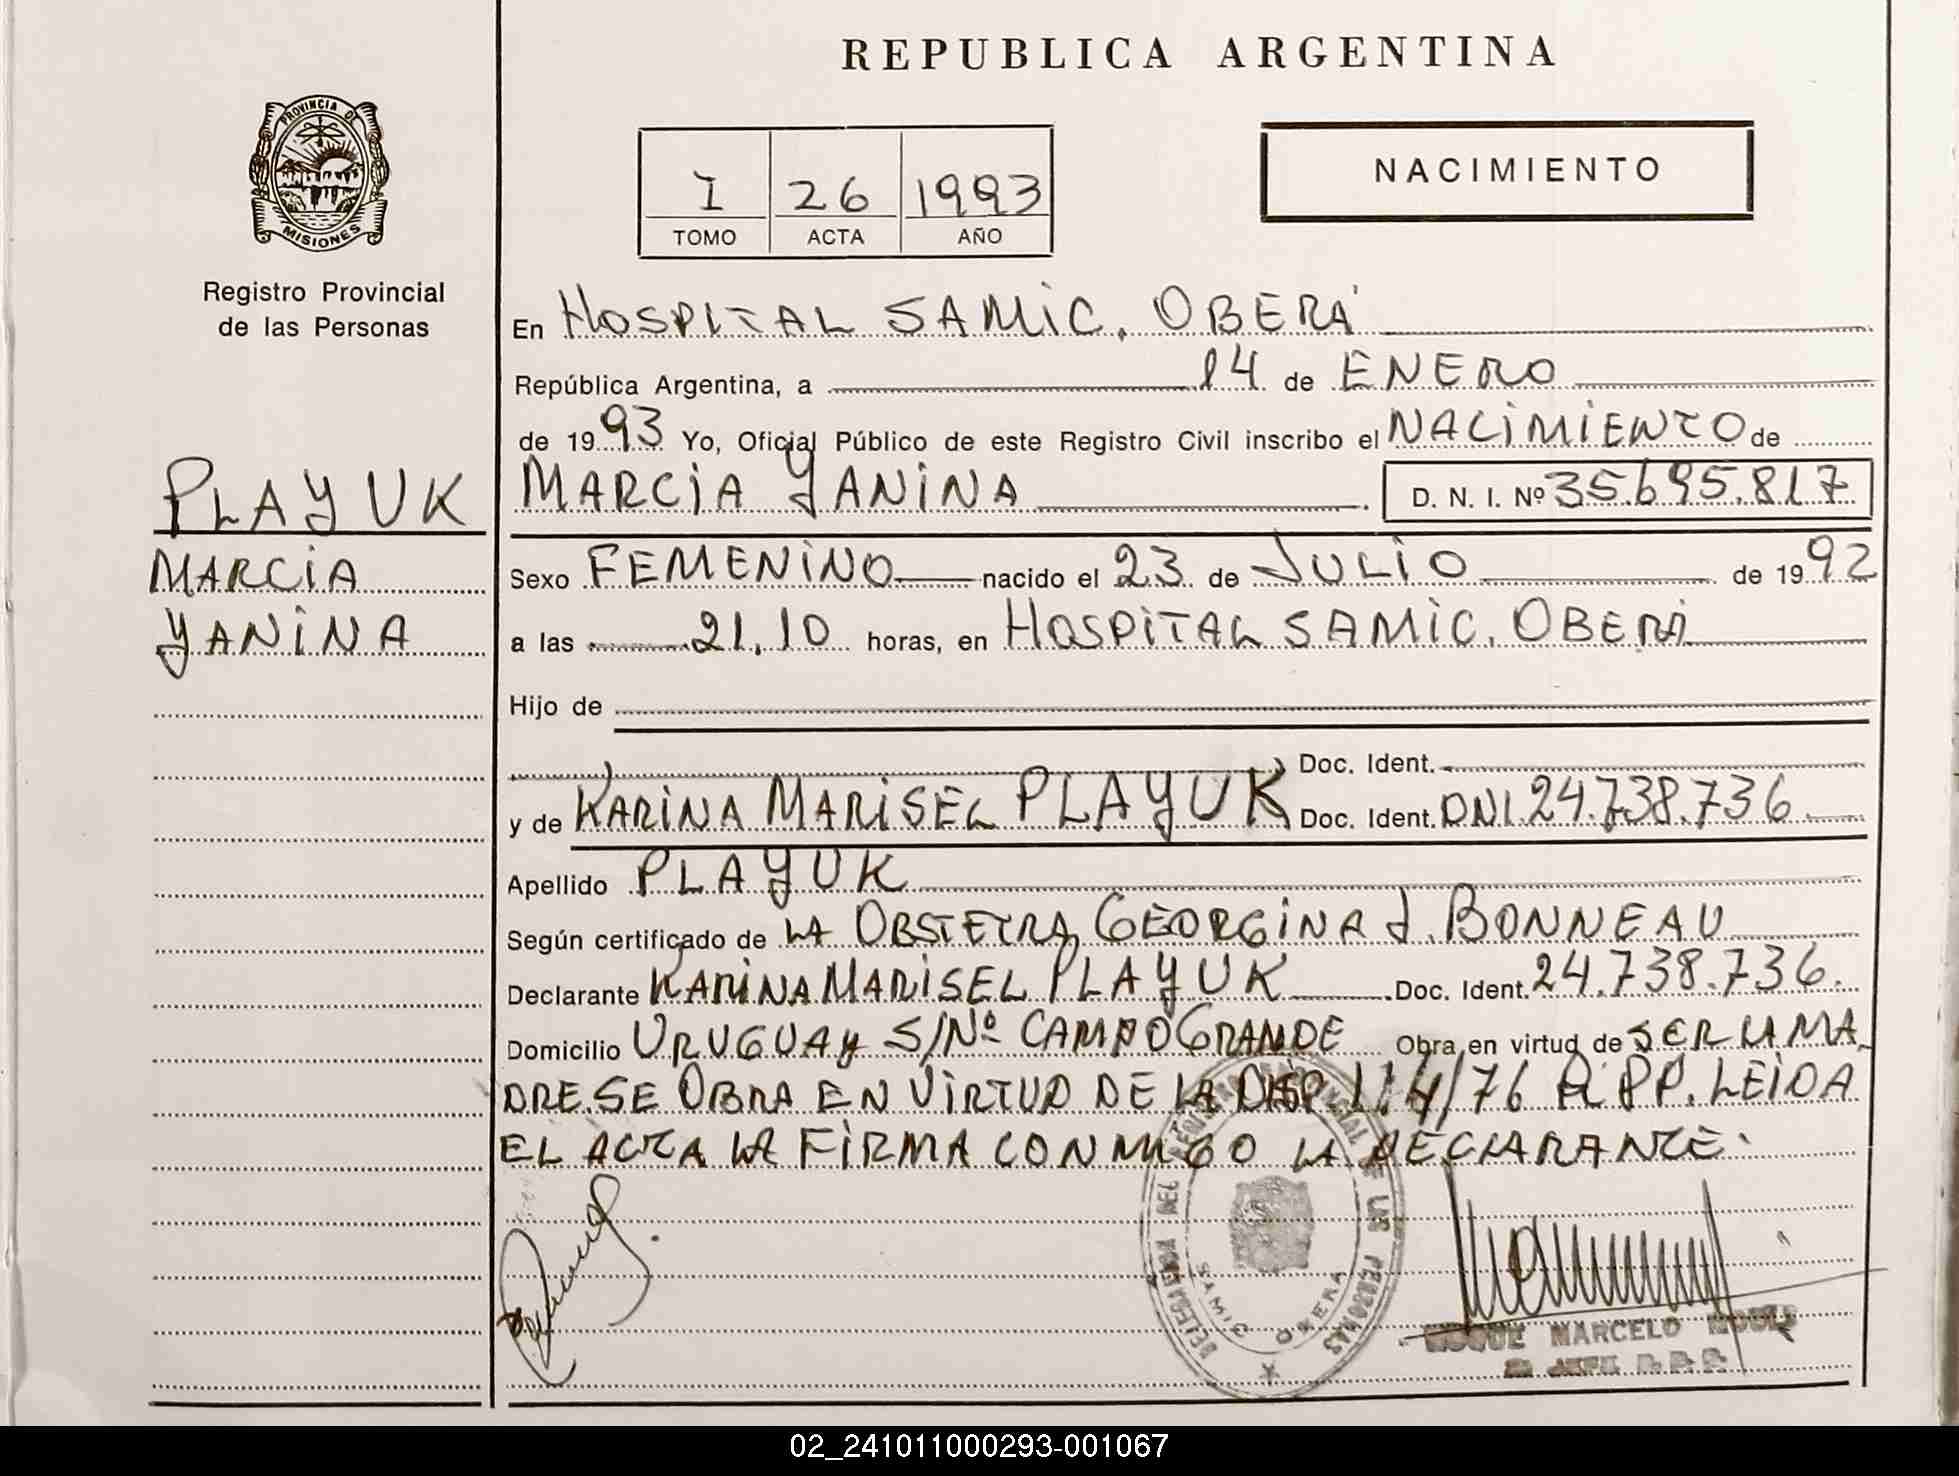 REPUBLICA ARGENTINA
PROVINCIA DE
MISIONES
Registro Provincial
de las Personas
I 26 1993
TOMO ACTA AÑO
NACIMIENTO
En HOSPITAL SAMIC. OBERÁ
República Argentina, a 14 de ENERO
de 1993 Yo, Oficial Público de este Registro Civil inscribo el NACIMIENTO de
PLAYUK
MARCIA
YANINA
MARCIA YANINA D. N. I. Nº 35.695.817
Sexo FEMENINO nacido el 23 de JULIO de 1992
a las 21,10 horas, en HOSPITAL SAMIC. OBERÁ
Hijo de
Doc. Ident.
y de KARINA MARISEL PLAYUK Doc. Ident. DNI. 24.738.736
Apellido PLAYUK
Según certificado de LA OBSTETRA, GEORGINA J. BONNEAU
Declarante KARINA MARISEL PLAYUK Doc. Ident. 24.738.736.
Domicilio URUGUAY S/Nº CAMPO GRANDE Obra en virtud de SER LA MA
DRE. SE OBRA EN VIRTUD DE LA DISP. 114/76 R. PP. LEIDA
EL ACTA LA FIRMA CONMIGO LA DECLARANTE.
DELEGACION DEL DE LAS PERSONAS
SAMIC OBERA
ROQUE MARCELO
02_241011000293-001067